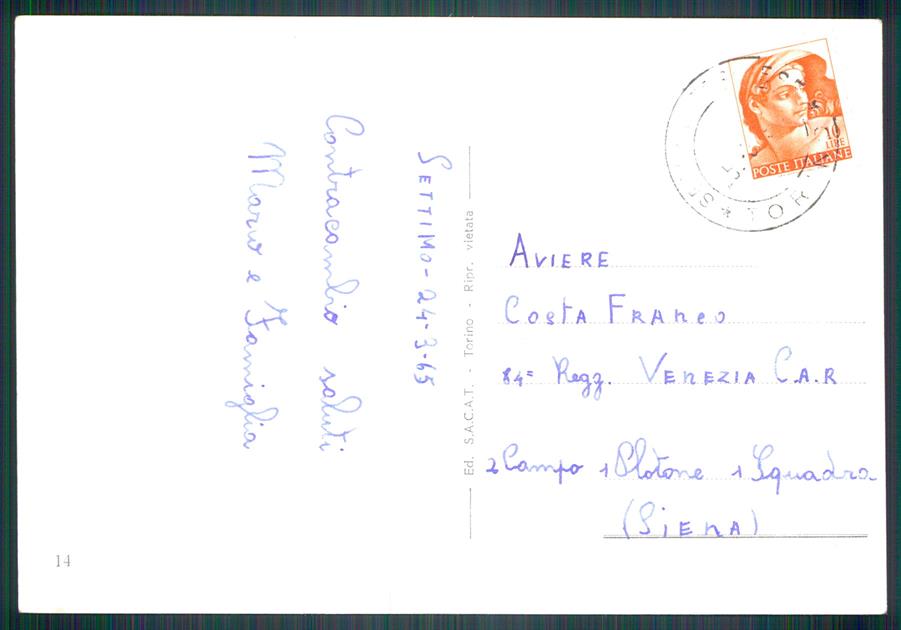 SETTIMO - 24-3-65
Contracambio saluti
Mario e Famiglia
Ed. S.A.C.A.T. - Torino - Ripr. vietata
10
LIRE
POSTE ITALIANE
AVIERE
COSTA FRANCO
84= Regg. VENEZIA C.A.R
2 Campo 1 Plotone 1 Squadra
(SIENA)
14